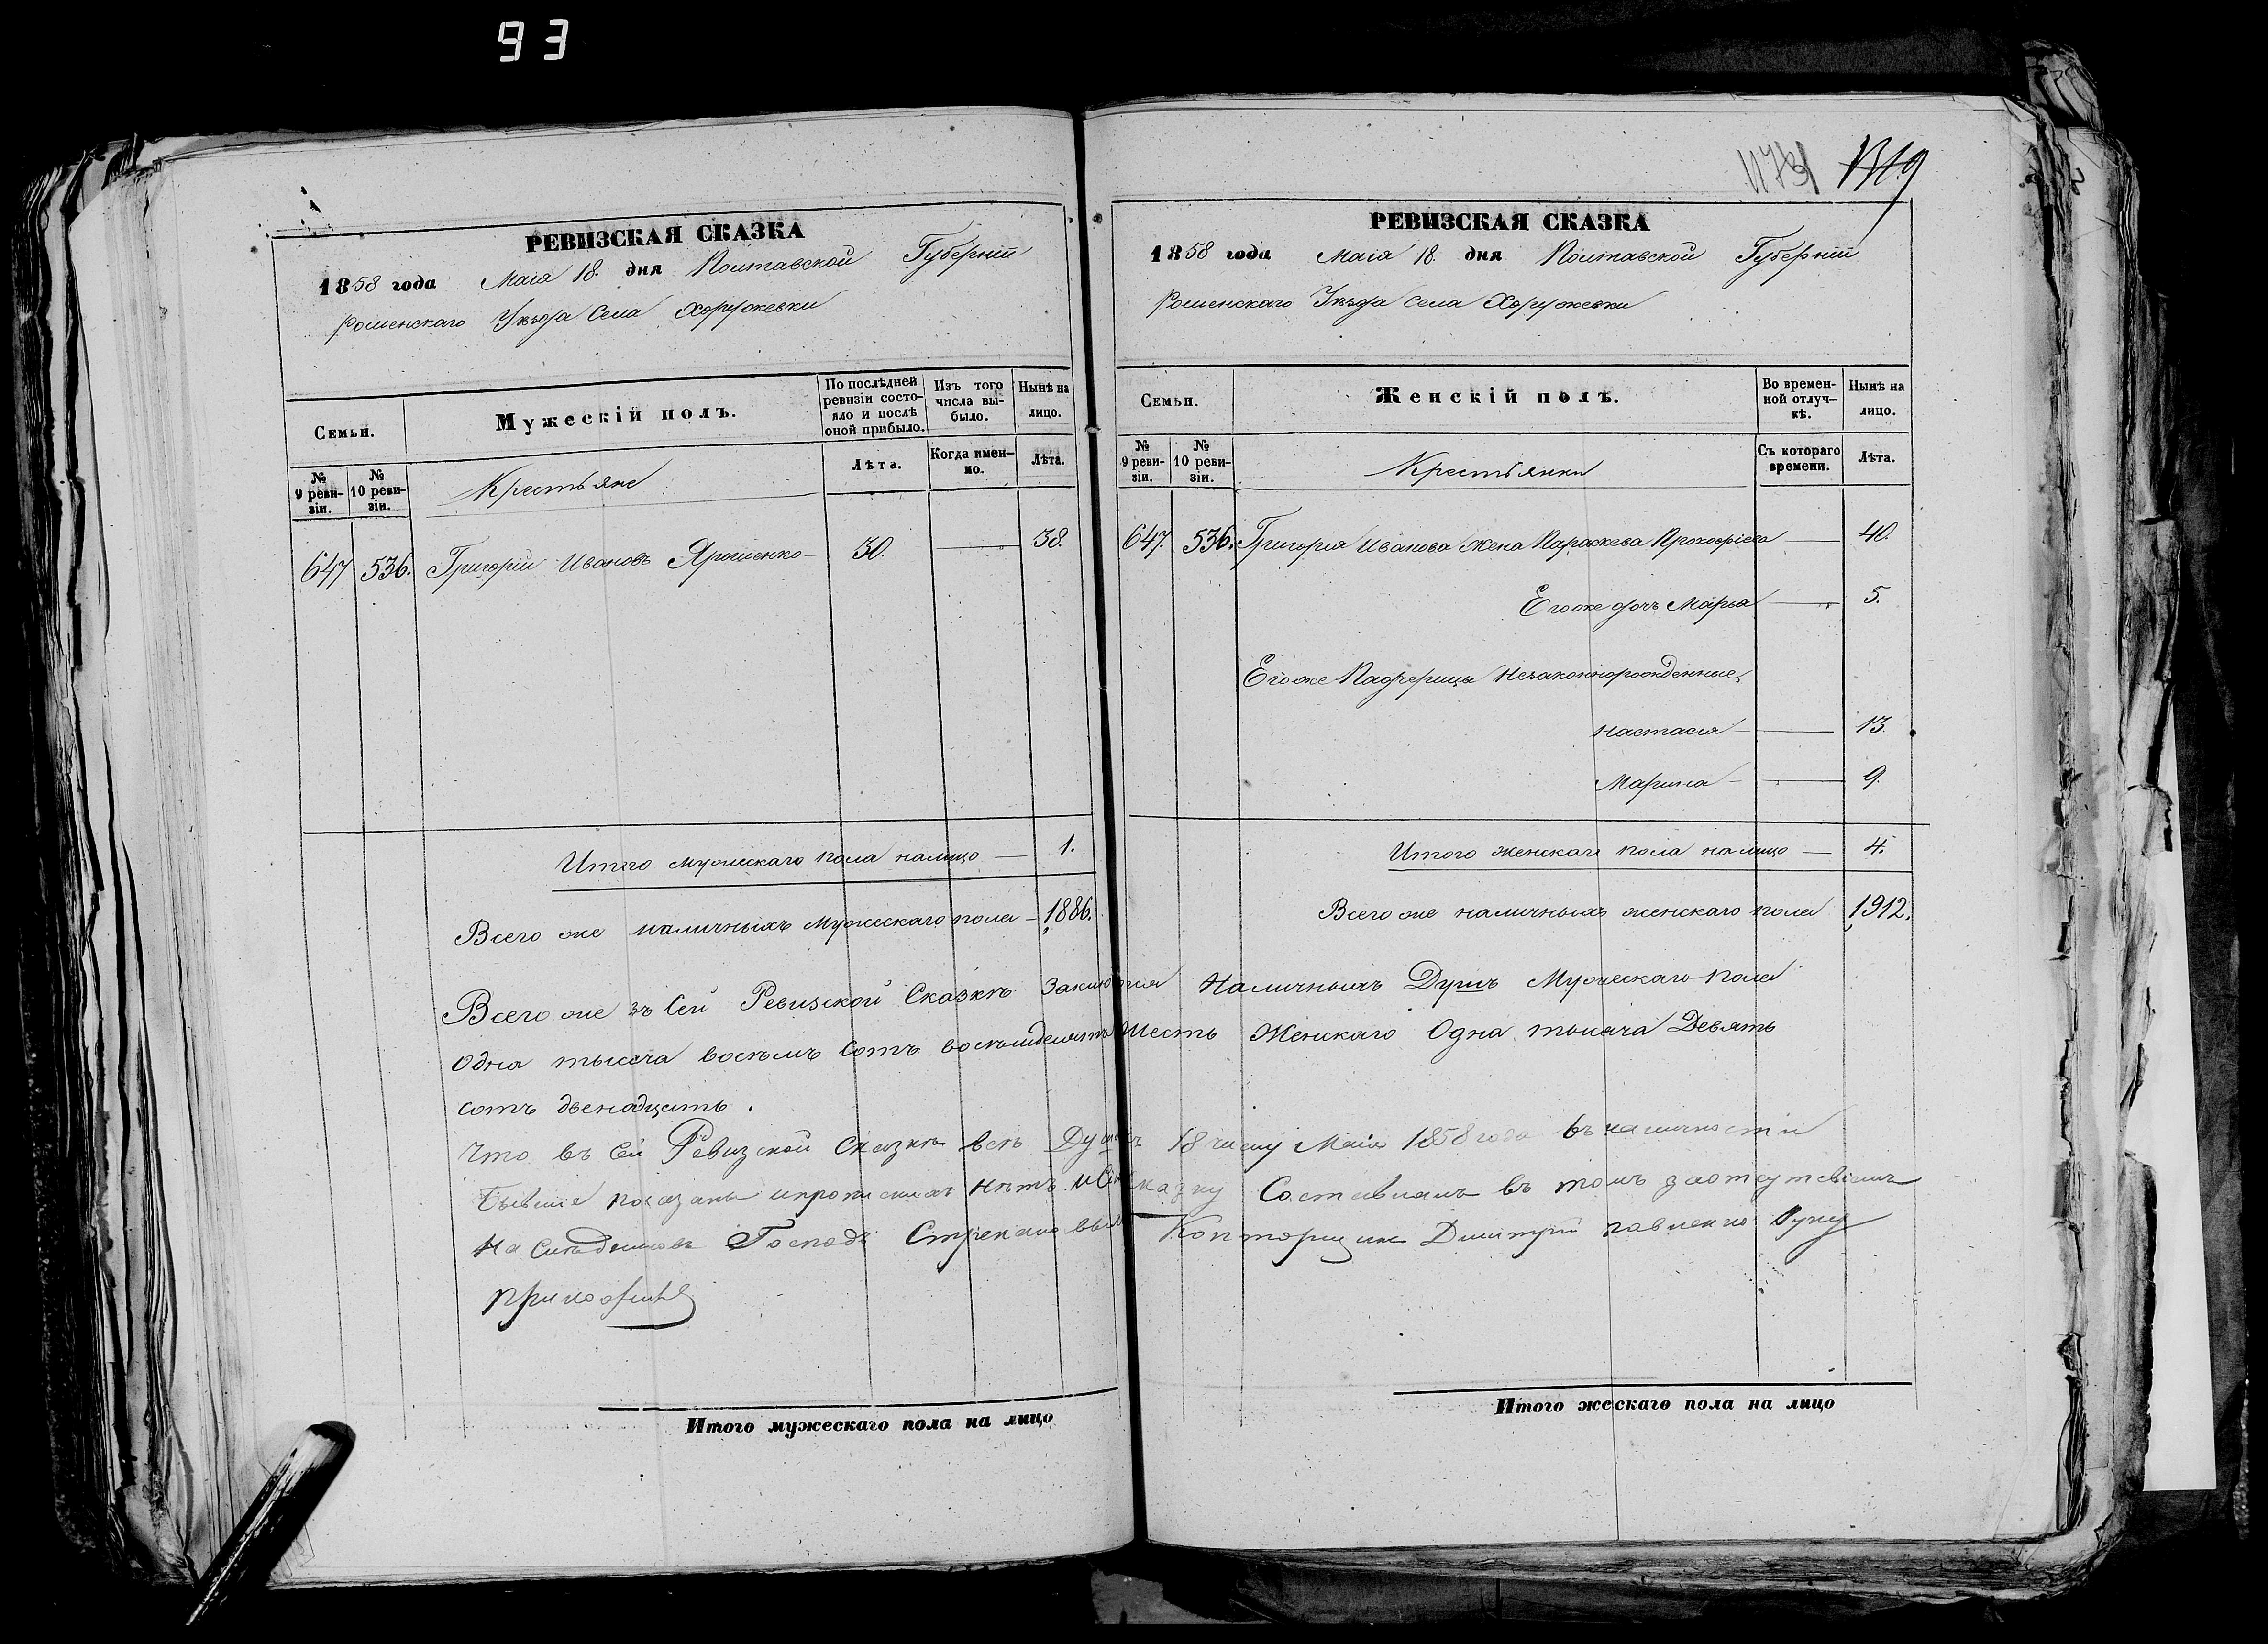 93
РЕВИЗСКАЯ СКАЗКА
1858 года Маія 18. дня Полтавской Губерніи
Роменскаго Уѣзда Села Хоружевки
Семьи.
Мужескій полъ.
По послѣдней ревизіи состояло и послѣ оной прибыло.
Изъ того числа выбыло.
Нынѣ на лицо.
№ 9 ревизіи.
№ 10 ревизіи.
Крестьяне
Лѣта.
Когда именно.
Лѣта.
647 536. Григорій Ивановъ Ярошенко 30. 38.
Итого мужескаго пола налицо 1.
Всего же наличныхъ мужескаго пола 1886.
1319
РЕВИЗСКАЯ СКАЗКА
1858 года Маія 18. дня Полтавской Губерніи
Роменскаго Уѣзда Села Хоружевки
Семьи.
Женскій полъ.
Во временной отлучкѣ.
Нынѣ на лицо.
№ 9 ревизіи.
№ 10 ревизіи.
Крестьянки
Съ котораго времени.
Лѣта.
647. 536. Григорія Иванова жена Параскева Прокофіева 40.
Егоже дочь Марья 5.
Егоже Падчерицы незаконнорожденные,
Настасія 13.
Марина 9.
Итого женскаго пола налицо 4.
Всего же наличныхъ женскаго пола 1912.
Всего же въ Сей Ревизской Сказкѣ Наличныхъ Душъ Мужескаго пола
Одна тысяча восемь сотъ восемьдесятъ Шесть Женскаго Одна тысяча Девять
сотъ двенадцать.
Что въ Сей Ревизской Сказкѣ всѣ Души 18 числу Маія 1858 года въ наличности
показаны нѣтъ Сказку Составилъ въ томъ
Господъ Дмитрій Павленко Руку
приложилъ
Итого мужескаго пола на лицо
Итого жескаго пола на лицо